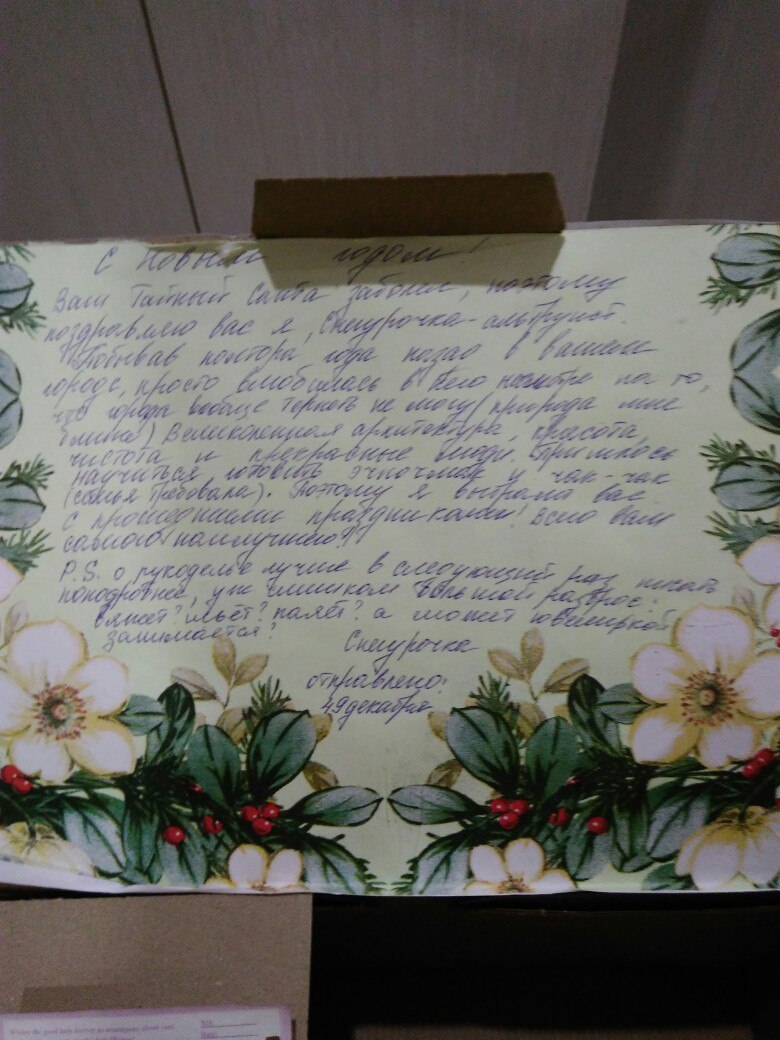 С Новым годом!
Ваш Тайный Санта заболел, поэтому
поздравляю вас я, Снегурочка-альтруист.
Побывав полтора года назад в вашем
городе, просто влюбилась в него несмотря на то,
что города вообще терпеть не могу (природа мне
ближе) Великолепная архитектура, красота,
чистота и прекрасные люди. Пришлось
научиться готовить эчпочмак и чак-чак
(семья требовала). Поэтому я выбрала вас.
С прошедшими праздниками! Всего вам
самого наилучшего!
P.S. о рукоделье лучше в следующий раз писать
поподробнее, уж слишком большой разброс:
вяжет? шьёт? паяет? а может ювелиркой
занимается?
Снегурочка
отправлено:
49 декабря